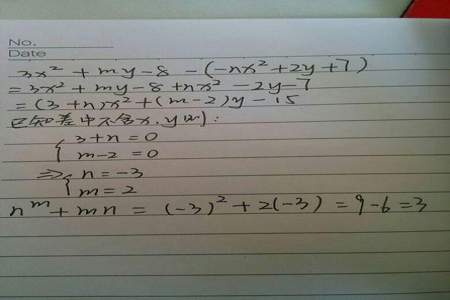 No.
Date
3x² + my - 8 - (-nx² + 2y + 7)
= 3x² + my - 8 + nx² - 2y - 7
= (3 + n)x² + (m - 2)y - 15
已知差中不含x, y则:
{ 3 + n = 0
m - 2 = 0
⇒ { n = -3
m = 2
n^m + mn = (-3)² + 2(-3) = 9 - 6 = 3